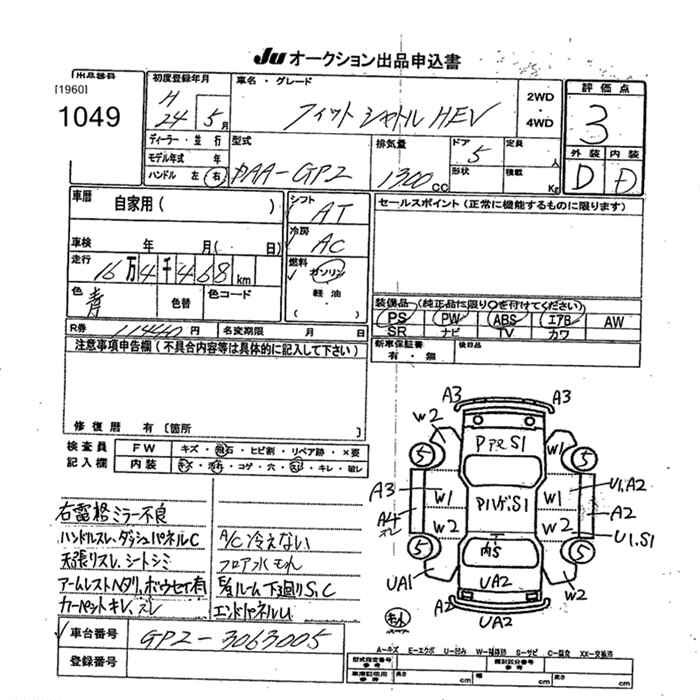 JU オークション出品申込書
出品番号
[1960]
1049
初度登録年月
H
24 5 月
車名・グレード
フィットシャトル HEV
2WD
・
4WD
評価点
3
外装 内装
D D
ディーラー・並行
モデル年式 年
ハンドル 左 右
型式
DAA-GP2
排気量
1300 CC
ドア
5
形状
定員 人
積載 Kg
車歴
自家用 ( )
車検 年 月( 日)
走行
16万4千468 km
色
青
色替
色コード
シフト
AT
冷房
AC
燃料
ガソリン
軽油
( )
セールスポイント (正常に機能するものに限ります)
装備品 (純正品に限り○を付けてください)
PS PW ABS エアB AW
SR ナビ TV カワ
R券 11440 円
名変期限 月 日
新車保証書
有・無
後日品
注意事項申告欄 (不具合内容等は具体的に記入して下さい)
修復歴 有 [箇所 ]
検査員
記入欄
FW キズ・飛石・ヒビ割・リペア跡・×要
内装 キズ・汚れ・コゲ・穴・スレ・キレ・破レ
右電格ミラー不良
ハンドルスレ、ダッシュパネルC
天張リスレ、シートシミ
アームレストヘタリ、ボウセイ有
カーペットキレ、スレ
A/C 冷えない
フロア水もれ
下廻りS、C
エンドパネルU
車台番号 GP2-3063005
登録番号
A3
A3
W2
5
5
W1
W1
A3
W1
W1
U1.A2
A4
W2
W2
A2
U1.S1
5
5
UA1
UA2
W2
A2
UA2
A2
A-キズ E-エクボ U-凹み W-補修跡 S-サビ C-腐食 XX-交換済
型式指定番号
参考
類別区分番号
参考
車庫証明用
参考
長さ cm
幅 cm
高さ cm